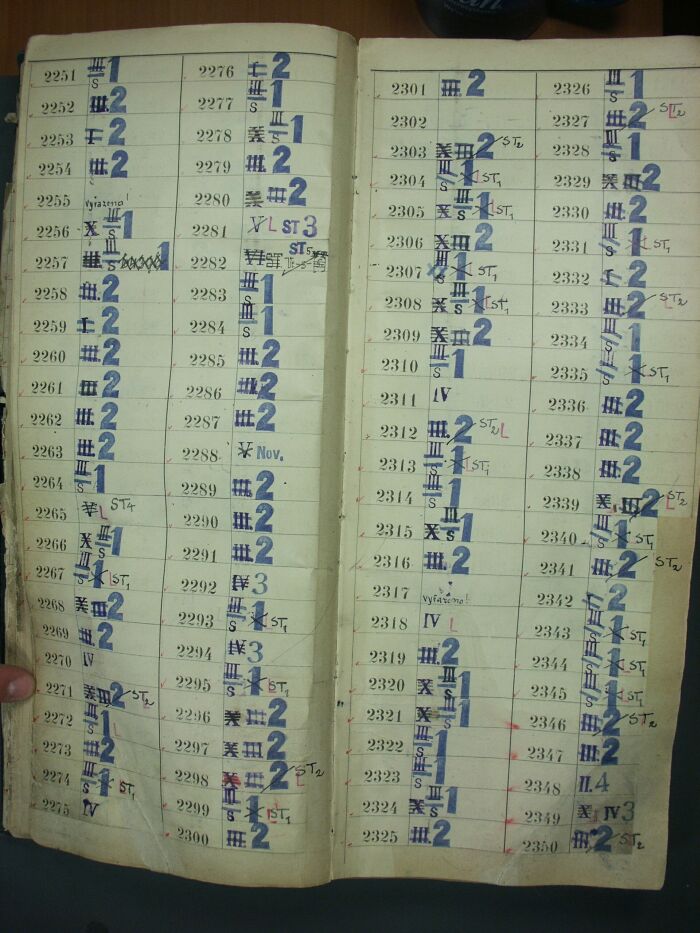 2251 III/S 1
2252 III. 2
2253 I 2
2254 III. 2
2255 vyřazeno!
2256 X III/S 1
2257 III III/S 1
2258 III. 2
2259 I 2
2260 III 2
2261 III 2
2262 III. 2
2263 III. 2
2264 III/S 1
2265 V L ST4
2266 X III/S 1
2267 III/S 1 X ST1
2268 X III 2
2269 III. 2
2270 IV
2271 X III 2 ST2
2272 III/S 1 L
2273 III 2
2274 III/S 1 X ST1
2275 IV
2276 I 2
2277 III/S 1
2278 X III/S 1
2279 III. 2
2280 X III 2
2281 V L ST 3
2282 VI ST5
2283 III/S 1
2284 III/S 1
2285 III. 2
2286 III. 2
2287 III. 2
2288 X Nov.
2289 III. 2
2290 III. 2
2291 III. 2
2292 IV 3
2293 III/S 1 X ST1
2294 IV 3
2295 III/S 1 X ST1
2296 X III 2
2297 X III 2
2298 X III 2 ST2 L
2299 III/S 1 X ST1
2300 III. 2
2301 III. 2
2302
2303 X III 2 ST2
2304 III/S 1 X ST1
2305 X III/S 1 X ST1
2306 X III 2
2307 III/S 1 X ST1
2308 X III/S 1 X ST1
2309 X III 2
2310 III/S 1
2311 IV
2312 III. 2 ST2 L
2313 III/S 1 X ST1
2314 III/S 1
2315 X III/S 1
2316 III. 2
2317 vyřazeno!
2318 IV L
2319 III. 2
2320 X III/S 1
2321 X III/S 1
2322 III/S 1
2323 III/S 1
2324 X III/S 1
2325 III. 2
2326 III/S 1
2327 III. 2 ST2 L
2328 III/S 1
2329 X III 2
2330 III. 2
2331 III/S 1 X ST1
2332 I 2
2333 III. 2 ST2 L
2334 III/S 1
2335 III/S 1 X ST1
2336 III. 2
2337 III. 2
2338 III. 2
2339 X III 2 ST2 L
2340 III/S 1 X ST1
2341 III. 2 ST2
2342 I 2
2343 III/S 1 X ST1
2344 III/S 1 X ST1
2345 III/S 1 X ST1
2346 III. 2 ST2
2347 III. 2
2348 II. 4
2349 X IV 3
2350 III. 2 ST2